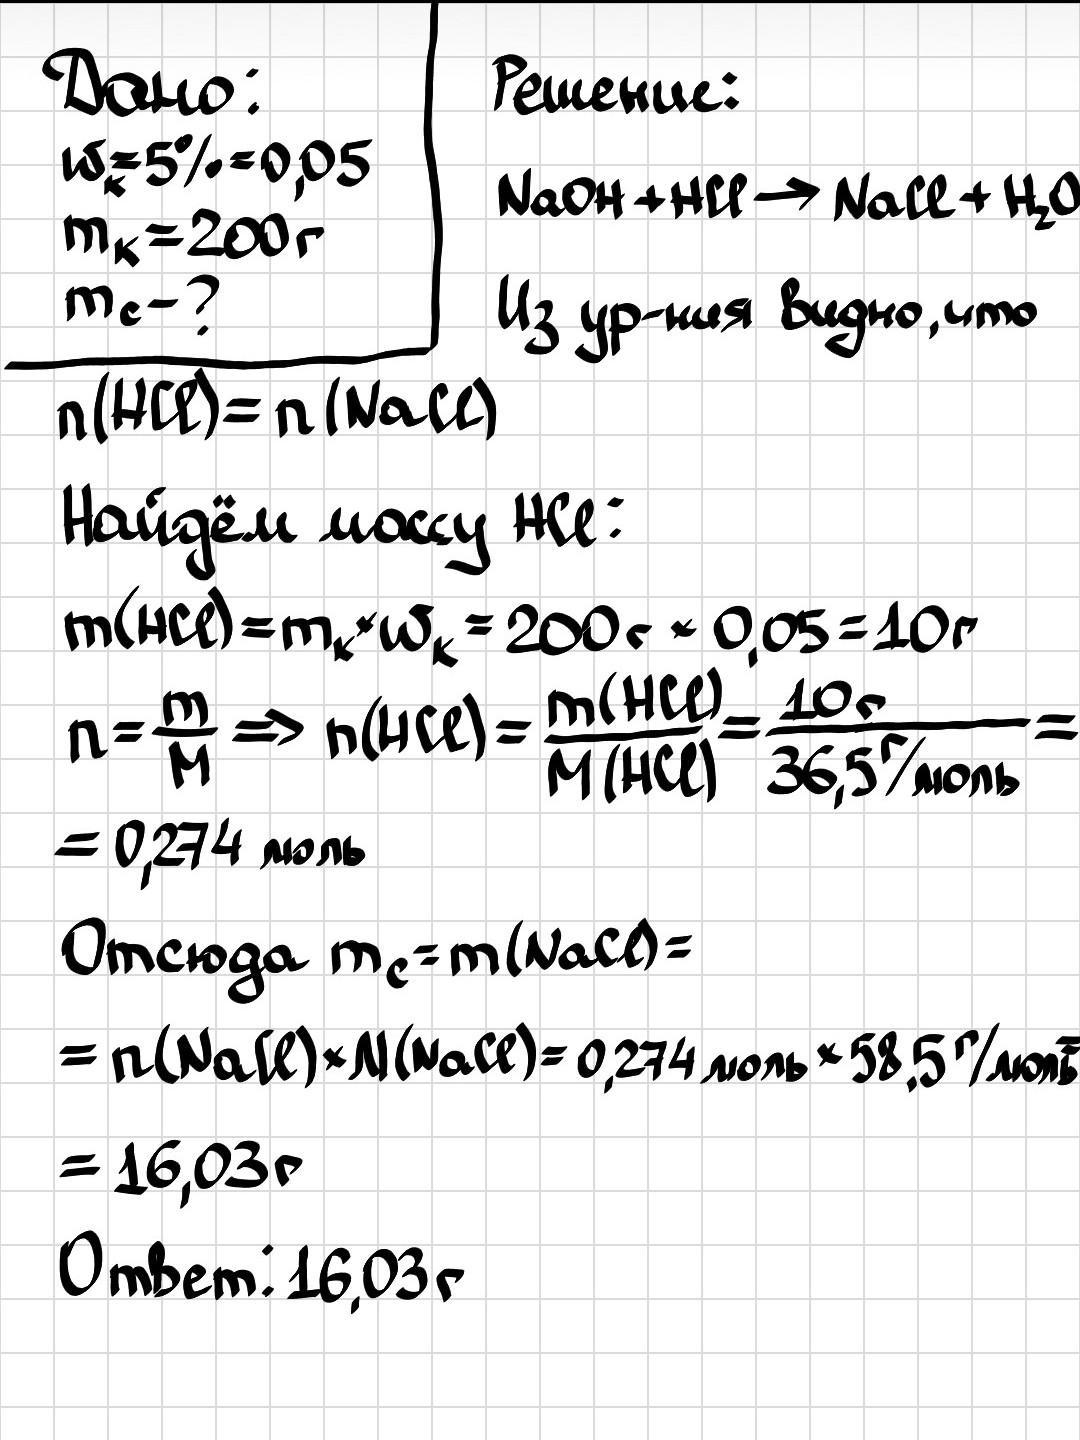 Дано:
wк=5%=0,05
mк=200г
mс-?
Решение:
NaOH+HCl→NaCl+H₂O
Из ур-ния видно, что
n(HCl)=n(NaCl)
Найдём массу HCl:
m(HCl)=mк×wк=200г×0,05=10г
n=m/M⇒n(HCl)=m(HCl)/M(HCl)=10г/36,5г/моль=
=0,274 моль
Отсюда mс=m(NaCl)=
=n(NaCl)×M(NaCl)=0,274 моль×58,5г/моль=
=16,03г
Ответ: 16,03г